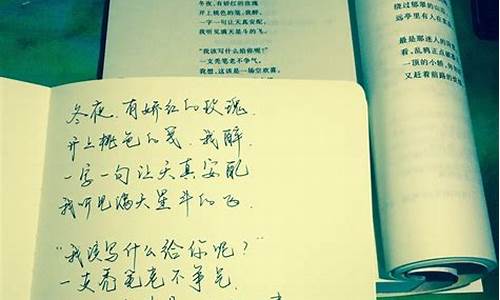 冬夜，有娇红的玫瑰
开上桃色的笺，我醉，
一字一句让天真安配，
我听见满天星斗的飞。
“我该写什么给你呢？”
一支秃笔老不争气，
我想，这该是一场空欢喜。
绕过郁翠的山
远亭里有人在
最是那迷人的
看，乱鸦正点
一顶的小轿，
又赶着前路的
冬夜.有娇红的玫瑰
开上桃色的笺.我醉
一字一句让天真安配
我听见满天星斗的飞
“我该写什么给你呢？”
一支秃笔老不争气